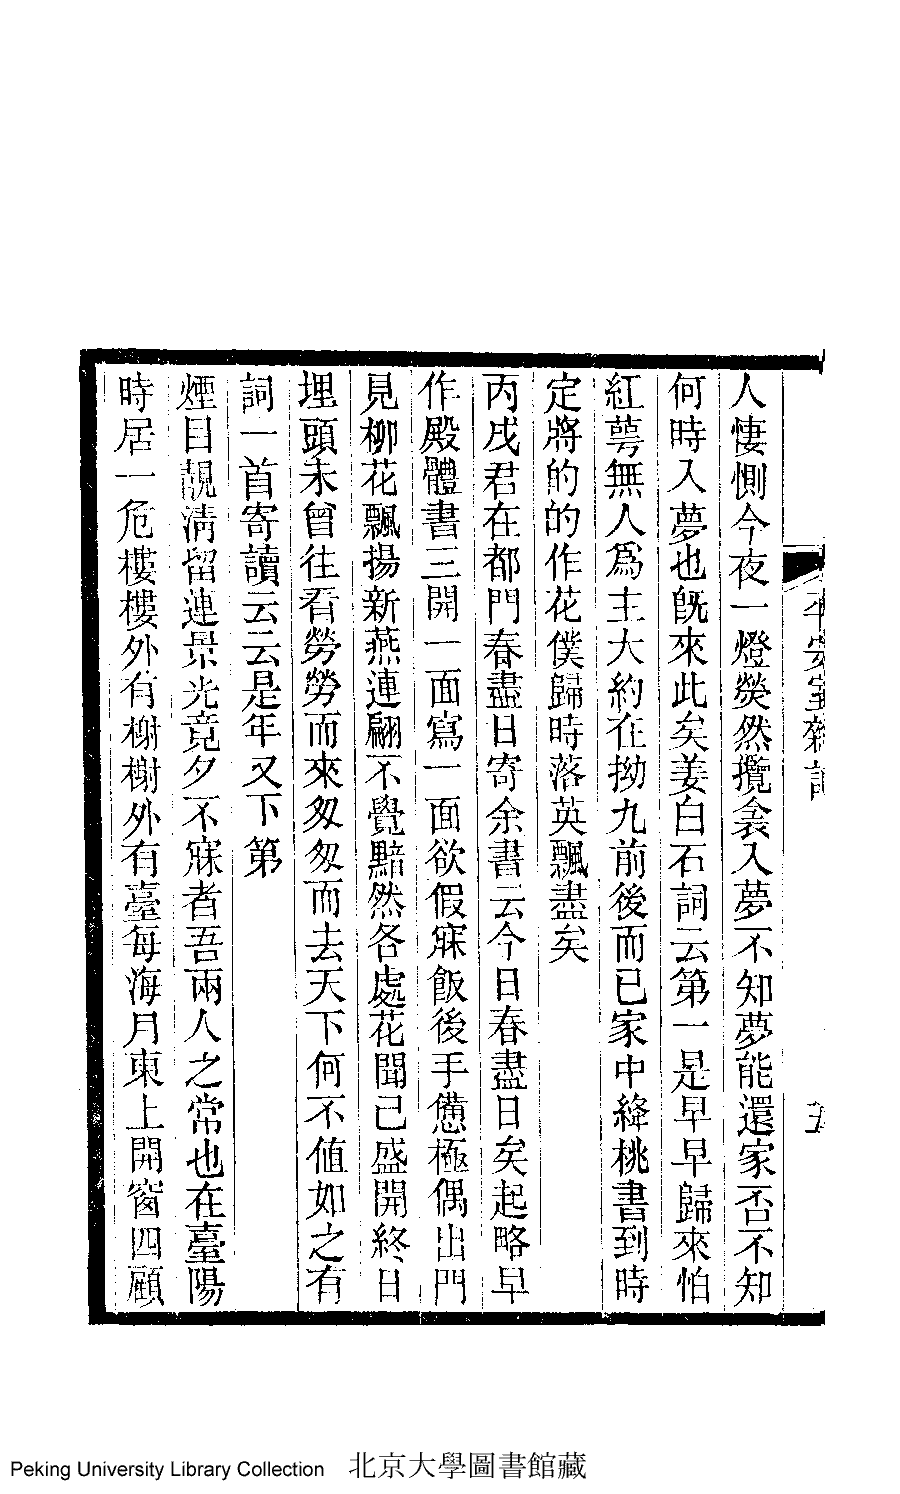 平安室雜記
五
人悽惻今夜一燈熒然攬衾入夢不知夢能還家否不知
何時入夢也旣來此矣姜白石詞云第一是早早歸來怕
紅萼無人爲主大約在拗九前後而已家中絳桃書到時
定將的的作花僕歸時落英飄盡矣
丙戌君在都門春盡日寄余書云今日春盡日矣起略早
作殿體書三開一面寫一面欲假寐飯後手憊極偶出門
見柳花飄揚新燕連翩不覺黯然各處花聞已盛開終日
埋頭未曾往看勞勞而來匆匆而去天下何不值如之有
詞一首寄讀云云是年又下第
煙目靚淸留連景光竟夕不寐者吾兩人之常也在臺陽
時居一危樓樓外有榭榭外有臺每海月東上開窗四顧
Peking University Library Collection 北京大學圖書館藏